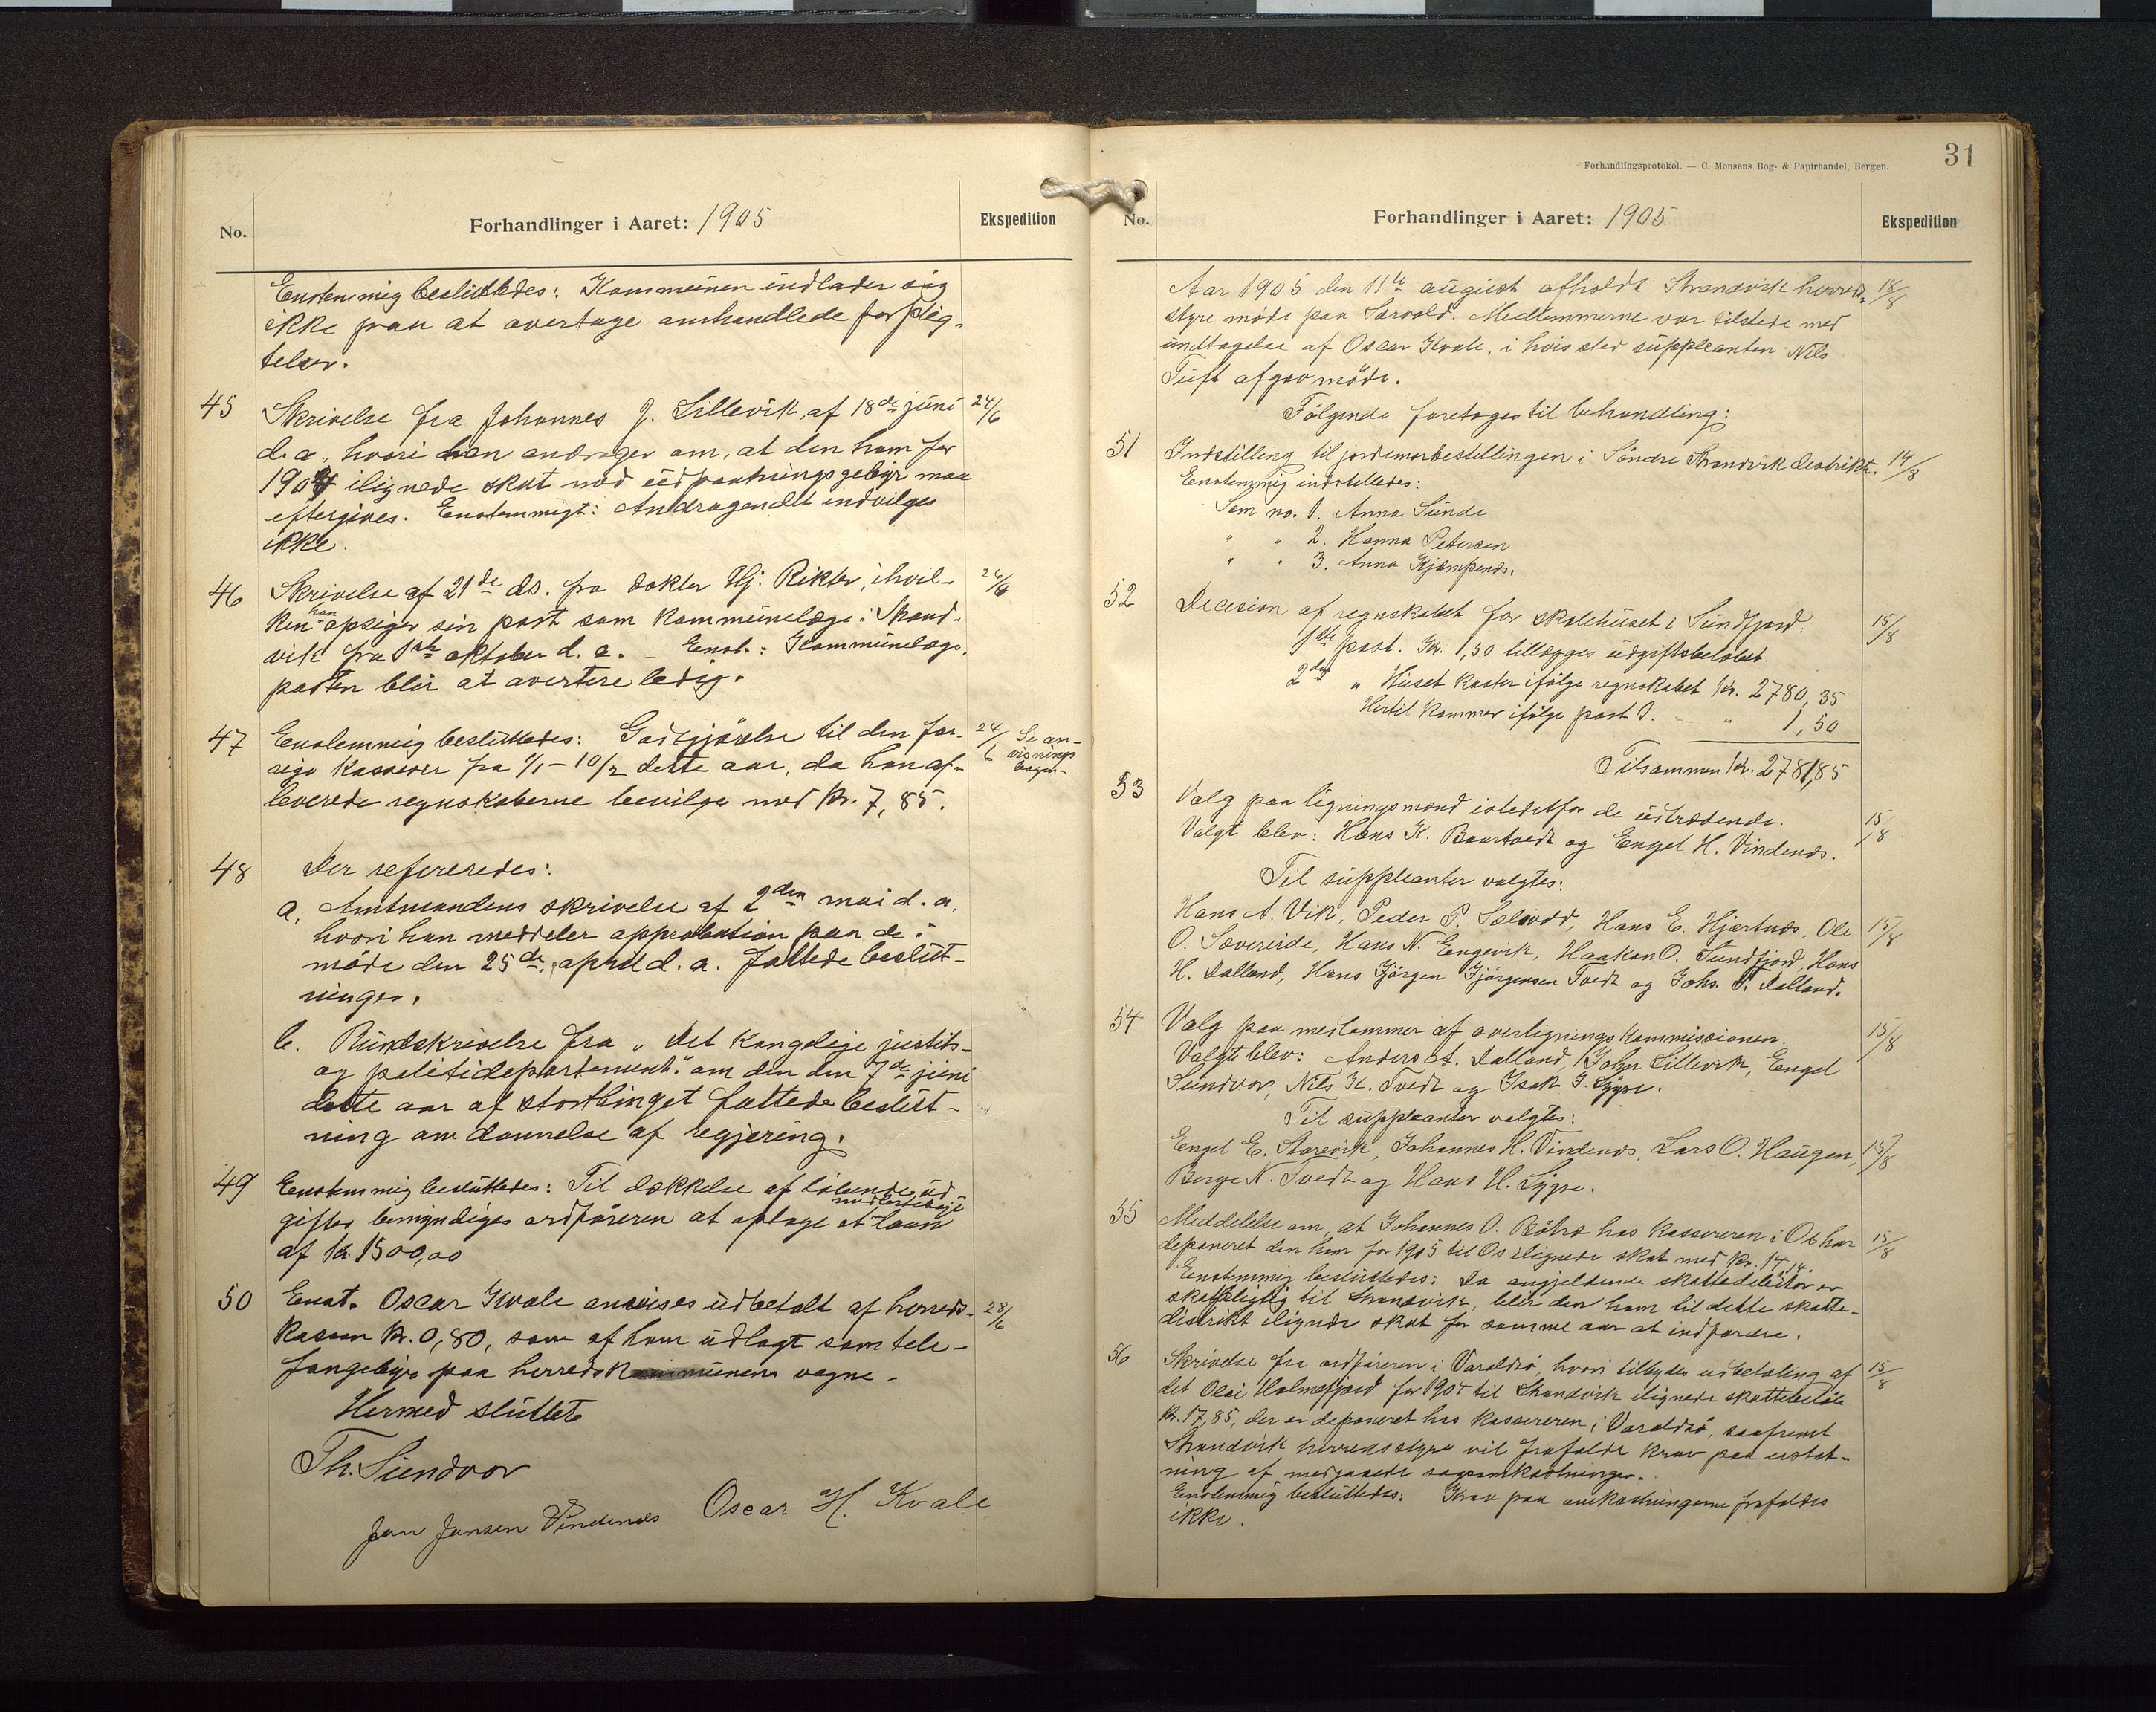 No.
Forhandlinger i Aaret: 1905
Ekspedition
Enstemmig besluttedes: Kommunen indlader sig
ikke paa at overtage omhandlede forplig-
telser.
45 Skrivelse fra Johannes J. Lillevik af 18de juni 24/6
d.a., hvori han andrager om, at den ham for
1904 ilignede skat med udpantningsgebyr maa
eftergives. Enstemmigt: Andragendet indvilges
ikke.
46 Skrivelse af 21de ds. fra doktor Hj. Rikter, i hvil- 26/6
ken han opsiger sin post som kommunelæge i Strand-
vik fra 1ste oktober d.a. – Enst.: Kommunelæge-
posten blir at avertere ledig.
47 Enstemmig besluttedes: Godtgjørelse til den for- 24/6 Se an-
rige kasserer fra 1/1 – 10/2 dette aar, da han af- visnings
leverede regnskaberne bevilges med kr. 7,85. bogen-
48 Der refereredes:
a, Amtmandens skrivelse af 2den mai d.a.
hvori han meddeler approbation paa de i
møde den 25de april d.a. fattede beslut-
ninger.
b. Rundskrivelse fra „Det kongelige justits-
og politidepartement" om den den 7de juni
dette aar af storthinget fattede beslut-
ning om dannelse af regjering.
49 Enstemmig besluttedes: Til dækkelse af løbende ud
gifter bemyndiges ordføreren at optage et midlertidigt laan
af kr. 1500,00
50 Enst. Oscar Kvale anvises udbetalt af herreds- 28/6
kassen kr. 0,80, som af ham udlagt som tele-
fongebyr paa herredskommunens vegne.
Hermed sluttet
Th. Sundvor
Jan Jansen Vindenes Oscar H. Kvale
Forhandlingsprotokol. — C. Monsens Bog- & Papirhandel, Bergen.
31
No.
Forhandlinger i Aaret: 1905
Ekspedition
Aar 1905 den 11te august afholdt Strandvik herreds- 18/8
styre møde paa Sævold. Medlemmerne var tilstede med
undtagelse af Oscar Kvale, i hvis sted suppleanten Nils
Tuft afgav møde.
Følgende foretoges til behandling:
51 Indstilling til jordemorbestillingen i Søndre Strandvik distrikt. 14/8
Enstemmig indstilledes:
Som no. 1. Anna Sunde
" " 2. Hanna Petersen
" " 3. Anna Kjæmpenes.
52 Decision af regnskabet for skolehuset i Sundfjord: 15/8
1ste post. Kr. 1,50 tillægges udgiftsbeløbet.
2den " Huset koster ifølge regnskabet kr. 2780,35
Hertil kommer ifølge post 1. – " 1,50
Tilsammen kr. 2781,85
53 Valg paa ligningsmænd istedetfor de udtrædende. 15/8
Valgt blev: Hans K. Baartvedt og Engel H. Vindenes.
Til suppleanter valgtes:
Hans A. Vik, Peder P. Sælevold, Hans E. Hjartnes, Ole 15/8
O. Sævereide, Hans N. Engevik, Haakon O. Sundfjord, Hans
H. Dalland, Hans Jørgen Jørgensen Tvedt og Johs. T. Dalland.
54 Valg paa medlemmer af overligningskommissionen. 15/8
Valgte blev: Anders A. Dalland, John Lillevik, Engel
Sundvor, Nils K. Tvedt og Isak J. Lygre.
Til suppleanter valgtes:
Engel E. Storevik, Johannes H. Vindenes, Lars O. Haugen, 15/8
Berge N. Tvedt og Hans H. Lygre.
55 Meddelelse om, at Johannes O. Røttre hos kassereren i Os har 15/8
deponeret den ham for 1905 til Os ilignede skat med kr. 14,14.
Enstemmig besluttedes: Da angjeldende skattedebitor er
skatpligtig til Strandvik, blir den ham til dette skatte-
distrikt ilignede skat for samme aar at indfordre.
56 Skrivelse fra ordføreren i Varaldsø, hvori tilbydes udbetaling af 15/8
det Olai Holmefjord for 1904 til Strandvik ilignede skattebeløb
kr. 17,85, der er deponeret hos kassereren i Varaldsø, saafremt
Strandvik herredsstyre vil frafalde krav paa erstat-
ning af medgaaede sagsomkostninger.
Enstemmig besluttedes: Krav paa omkostningerne frafaldes
ikke.